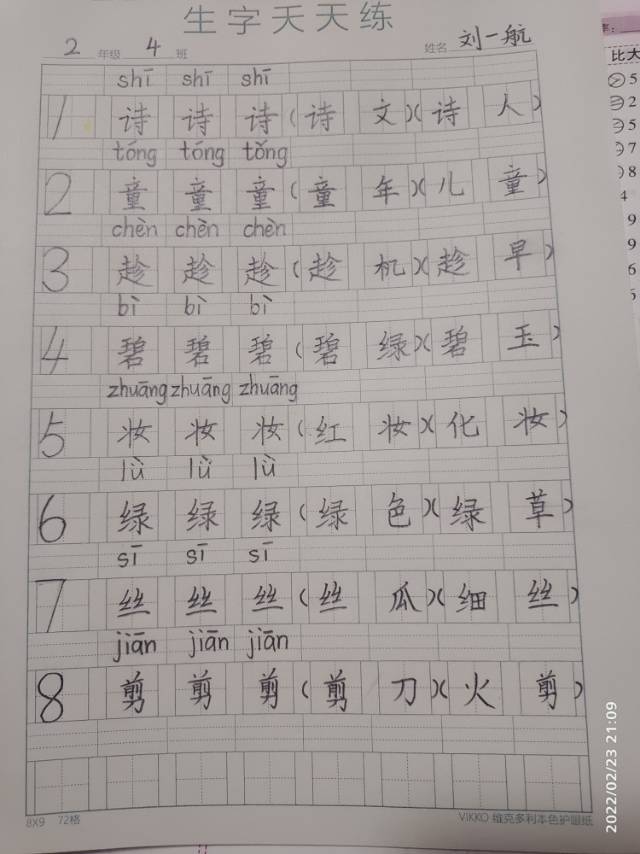 生字天天练
2 年级 4 班 姓名 刘一航
shī shī shī
1 诗 诗 诗 (诗 文)(诗 人)
tóng tóng tǒng
2 童 童 童 (童 年)(儿 童)
chèn chèn chèn
3 趁 趁 趁 (趁 机)(趁 早)
bì bì bì
4 碧 碧 碧 (碧 绿)(碧 玉)
zhuāng zhuāng zhuāng
5 妆 妆 妆 (红 妆)(化 妆)
lǜ lǜ lǜ
6 绿 绿 绿 (绿 色)(绿 草)
sī sī sī
7 丝 丝 丝 (丝 瓜)(细 丝)
jiān jiān jiān
8 剪 剪 剪 (剪 刀)(火 剪)
8X9 72格 VIKKO 维克多利本色护眼纸
比大
5
2
5
7
8
4
9
9
6
5
2022/02/23 21:09